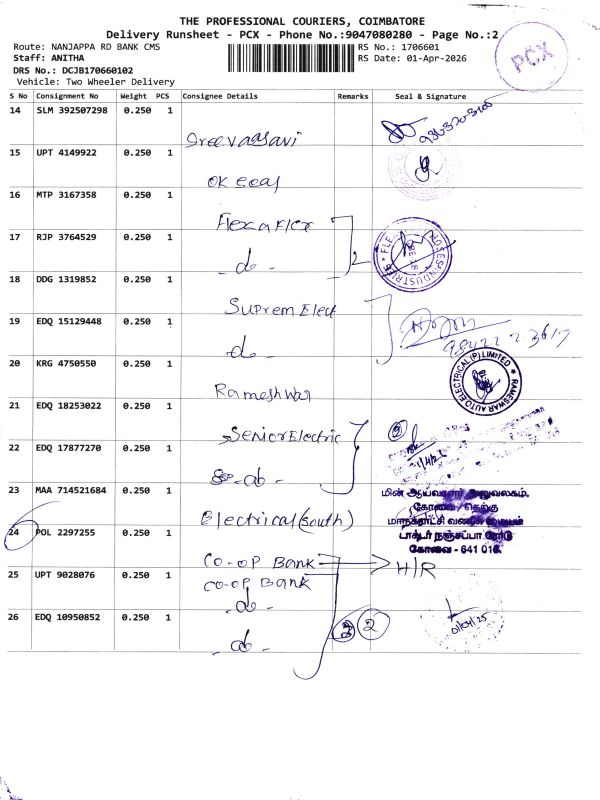 THE PROFESSIONAL COURIERS, COIMBATORE
Delivery Runsheet - PCX - Phone No.:9047080280 - Page No.:2
Route: NANJAPPA RD BANK CMS RS No.: 1706601
Staff: ANITHA RS Date: 01-Apr-2026
DRS No.: DCJB170660102
Vehicle: Two Wheeler Delivery
PCX
S No Consignment No Weight PCS Consignee Details Remarks Seal & Signature
14 SLM 392507298 0.250 1
Sree vaasavi
15 UPT 4149922 0.250 1
16 MTP 3167358 0.250 1
Flexa Flex
17 RJP 3764529 0.250 1
-do- 2
18 DDG 1319852 0.250 1
Suprem Elect
19 EDQ 15129448 0.250 1
-do-
20 KRG 4750550 0.250 1
Rameshwar
RAMESWAR AUTO ELECTRICAL (P) LIMITED
21 EDQ 18253022 0.250 1
Senior Electric
22 EDQ 17877270 0.250 1
-do-
23 MAA 714521684 0.250 1
Electrical (south)
மின் ஆய்வாளர் அலுவலகம்,
கோவை / தெற்கு
மாநகராட்சி வணிக வளாகம்
டாக்டர் நஞ்சப்பா ரோடு
கோவை - 641 018.
24 POL 2297255 0.250 1
CO-OP Bank H/R
25 UPT 9028076 0.250 1
CO-OP Bank
-do-
26 EDQ 10950852 0.250 1
-do- 2